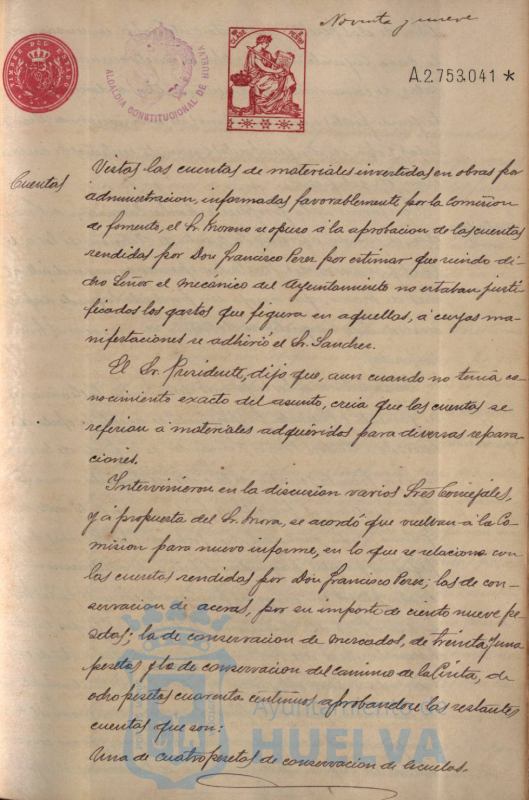 Noventa y nueve
TIMBRE DEL ESTADO
ALCALDIA CONSTITUCIONAL DE HUELVA
A.2.753.041 *
Cuentas
Vistas las cuentas de materiales invertidas en obras por
administracion, informadas favorablemente por la Comision
de fomento, el Sr. Moreno se opuso á la aprobacion de las cuentas
rendidas por Don Francisco Perez por estimar que siendo di-
cho Señor el mecánico del Ayuntamiento no estaban justi-
ficados los gastos que figura en aquellas, á cuyas ma-
nifestaciones se adhirió el Sr. Sanchez.
El Sr. Presidente, dijo que, aun cuando no tenia co-
nocimiento exacto del asunto, creia que las cuentas se
referian á materiales adquiridos para diversas repara-
ciones.
Intervinieron en la discusion varios Sres Concejales,
y á propuesta del Sr. Mora, se acordó que vuelvan á la Co-
mision para nuevo informe, en lo que se relaciona con
las cuentas rendidas por Don Francisco Perez; las de con-
servacion de aceras, por su importe de ciento nueve pe-
setas; la de conservacion de mercados, de treinta y una
pesetas y la de conservacion del camino de la Cinta, de
ocho pesetas cuarenta centimos aprobandose las restantes
cuentas que son:
Una de cuatro pesetas de conservacion de escuelas.
Ayuntamiento de
HUELVA